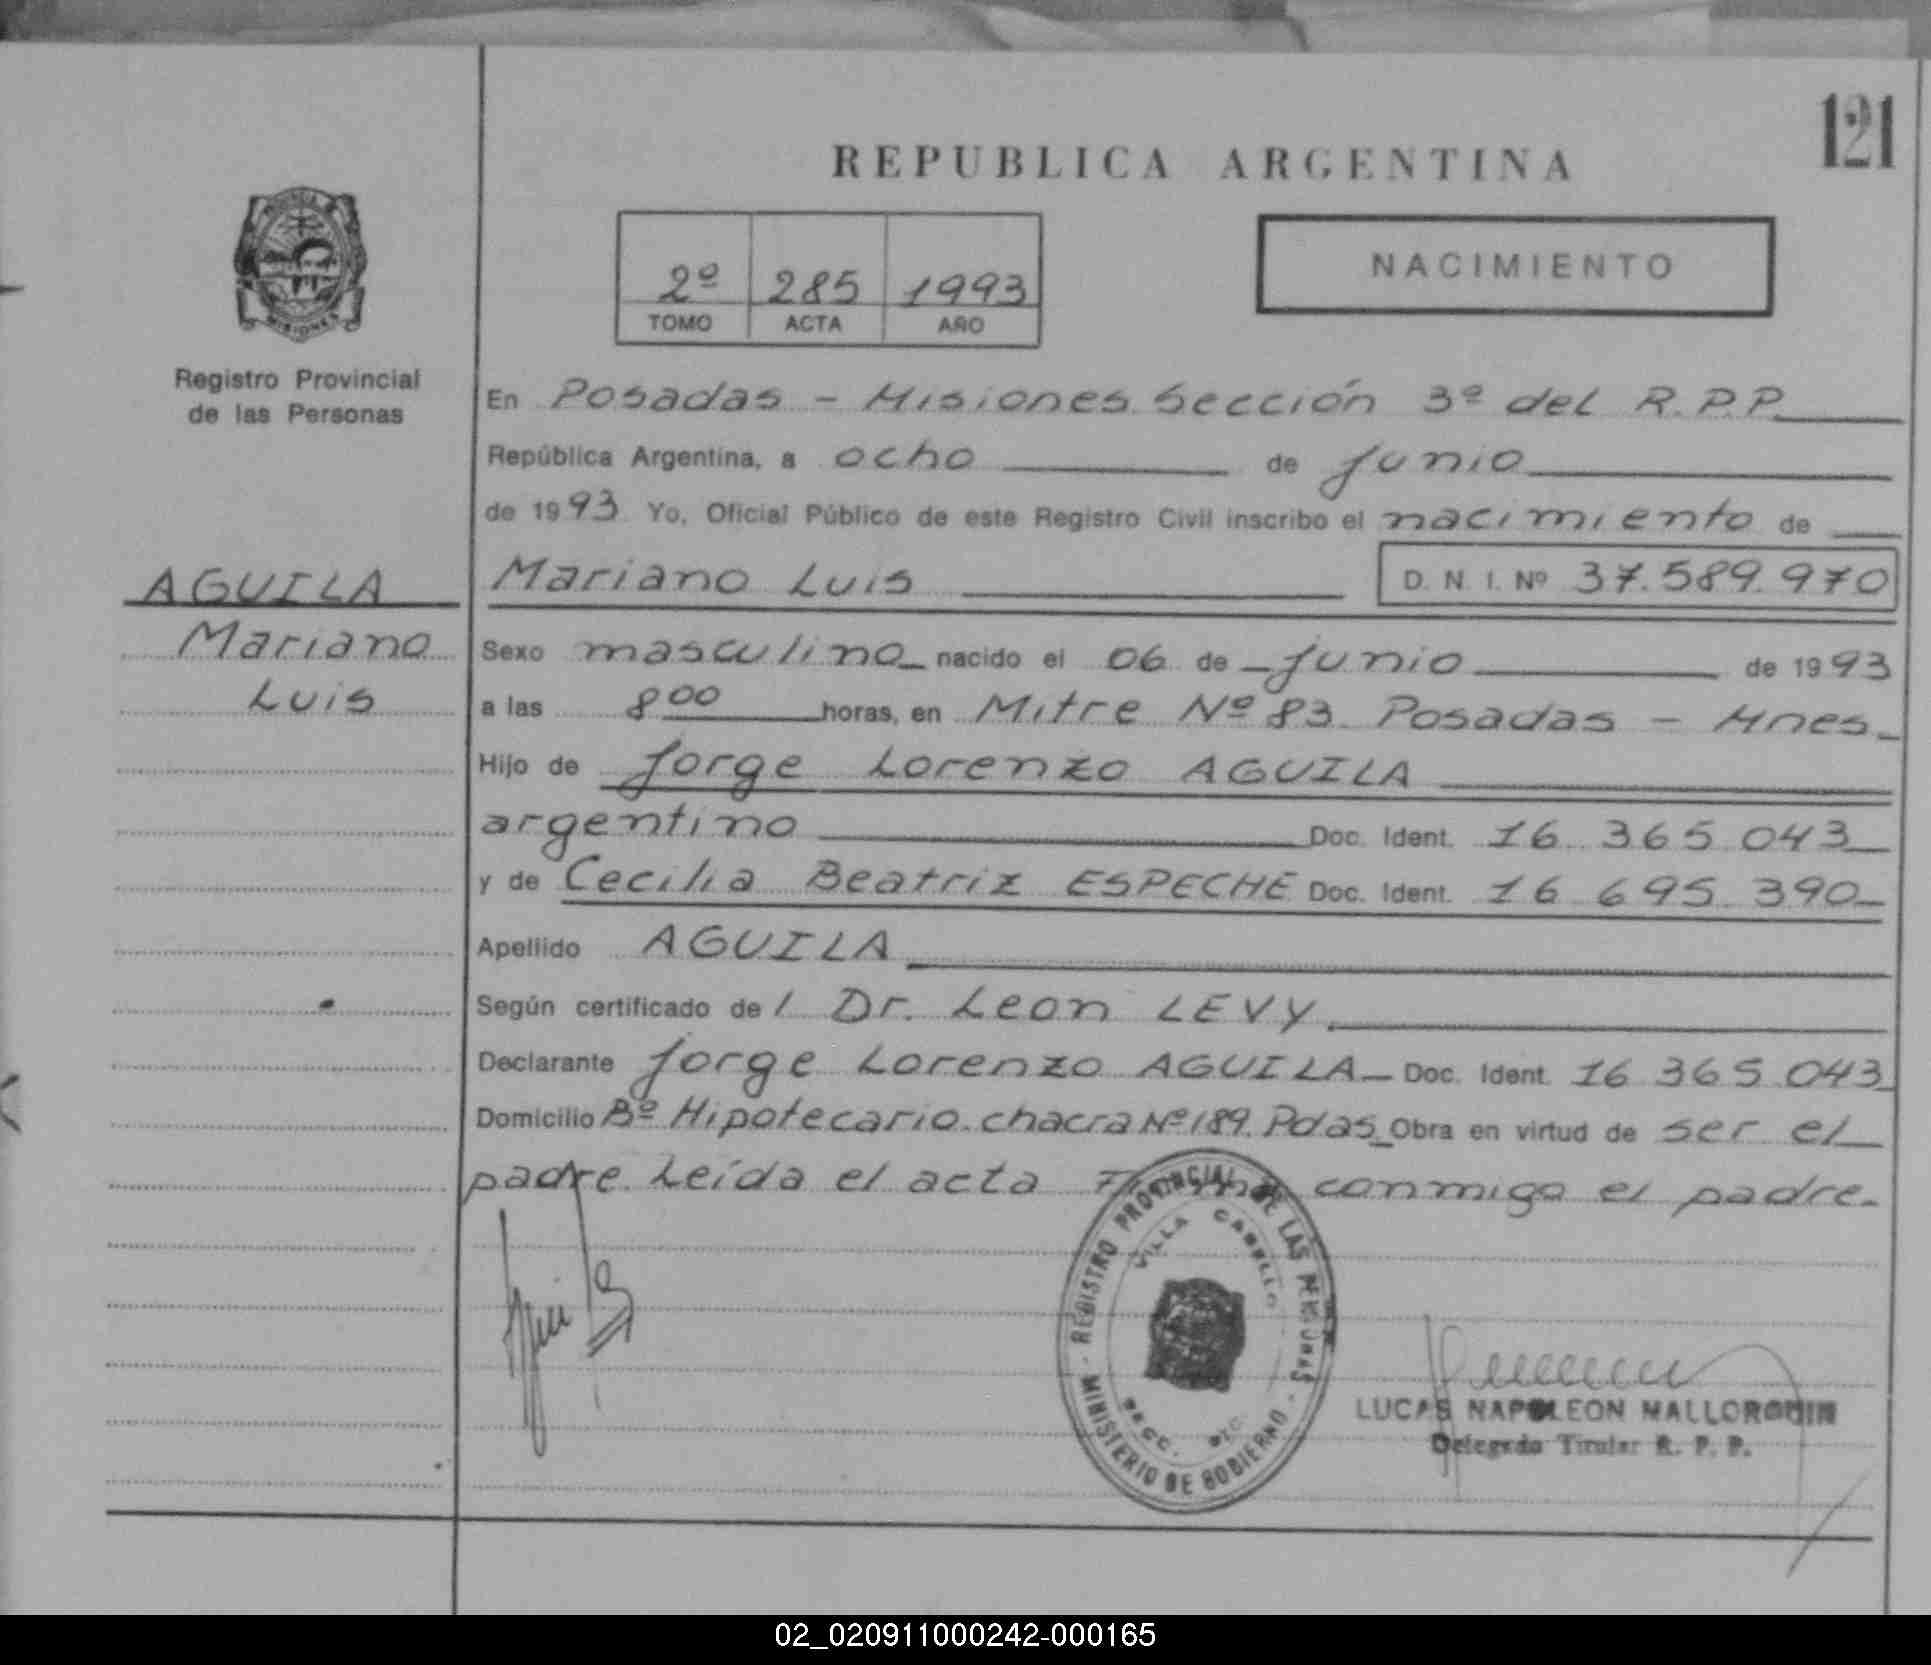 121
REPUBLICA ARGENTINA
2º 285 1993
TOMO ACTA AÑO
NACIMIENTO
MISIONES
Registro Provincial
de las Personas
AGUILA
Mariano
Luis
En Posadas - Misiones Sección 3º del R.P.P.
República Argentina, a ocho de junio
de 1993 Yo, Oficial Público de este Registro Civil inscribo el nacimiento de
Mariano Luis D. N. I. Nº 37.589.970
Sexo masculino nacido el 06 de junio de 1993
a las 8 00 horas, en Mitre Nº 83 Posadas - Mnes.
Hijo de Jorge Lorenzo AGUILA
argentino Doc. Ident. 16 365 043
y de Cecilia Beatriz ESPECHE Doc. Ident. 16 695 390
Apellido AGUILA
Según certificado de l Dr. Leon LEVY
Declarante Jorge Lorenzo AGUILA Doc. Ident. 16 365 043
Domicilio Bº Hipotecario chacra Nº 189. Pdas Obra en virtud de ser el
padre. Leída el acta conmigo el padre.
REGISTRO PROVINCIAL DE LAS PERSONAS
VILLA CABELLO
SECC.
MINISTERIO DE GOBIERNO
LUCAS NAPOLEON MALLORQUIN
Delegado Titular R. P. P.
02_020911000242-000165